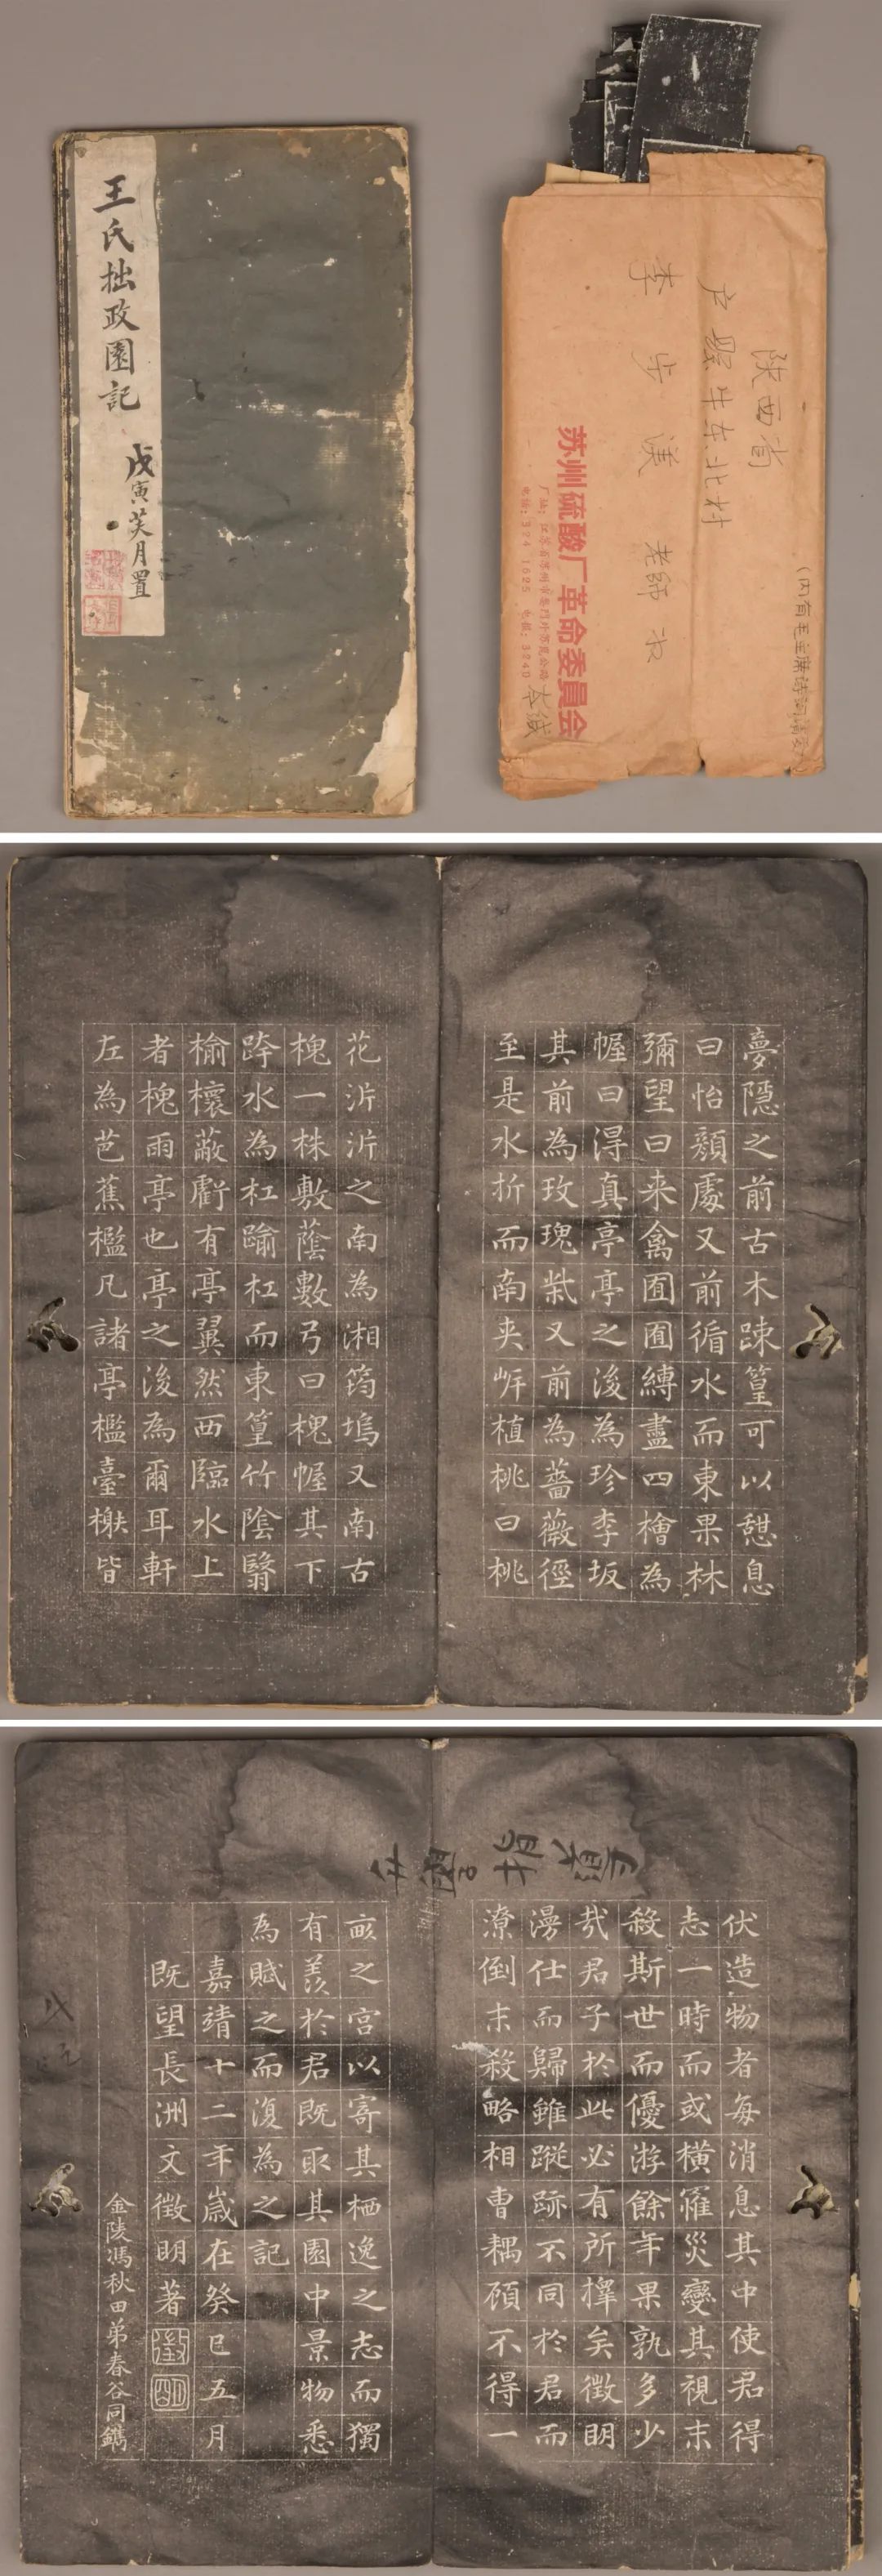 王氏拙政園記
戊寅荚月置
陕西省
户縣牛东北村
李步漢老師收
苏州硫酸厂革命委員会
本緘
夢隱之前古木疎篁可以憇息
曰怡顔處又前循水而東果林
彌望曰来禽囿囿縛盡四檜為
幄曰得真亭亭之後為珍李坂
其前為玫瑰柴又前為薔薇徑
至是水折而南夾岸植桃曰桃
花沜沜之南為湘筠塢又南古
槐一株敷蔭數弓曰槐幄其下
跨水為杠踰杠而東篁竹陰翳
榆櫰蔽虧有亭翼然西臨水上
者槐雨亭也亭之後為爾耳軒
左為芭蕉檻凡諸亭檻臺榭皆
伏造物者每消息其中使君得
志一時而或橫罹災變其視末
殺斯世而優游餘年果孰多少
哉君子於此必有所擇矣徵明
漫仕而歸雖蹤跡不同於君而
潦倒末殺略相曹耦顧不得一
畝之宮以寄其栖逸之志而獨
有羨於君既取其園中景物悉
為賦之而復為之記
嘉靖十二年歲在癸巳五月
既望長洲文徵明著
金陵馮秋田弟春谷同鐫